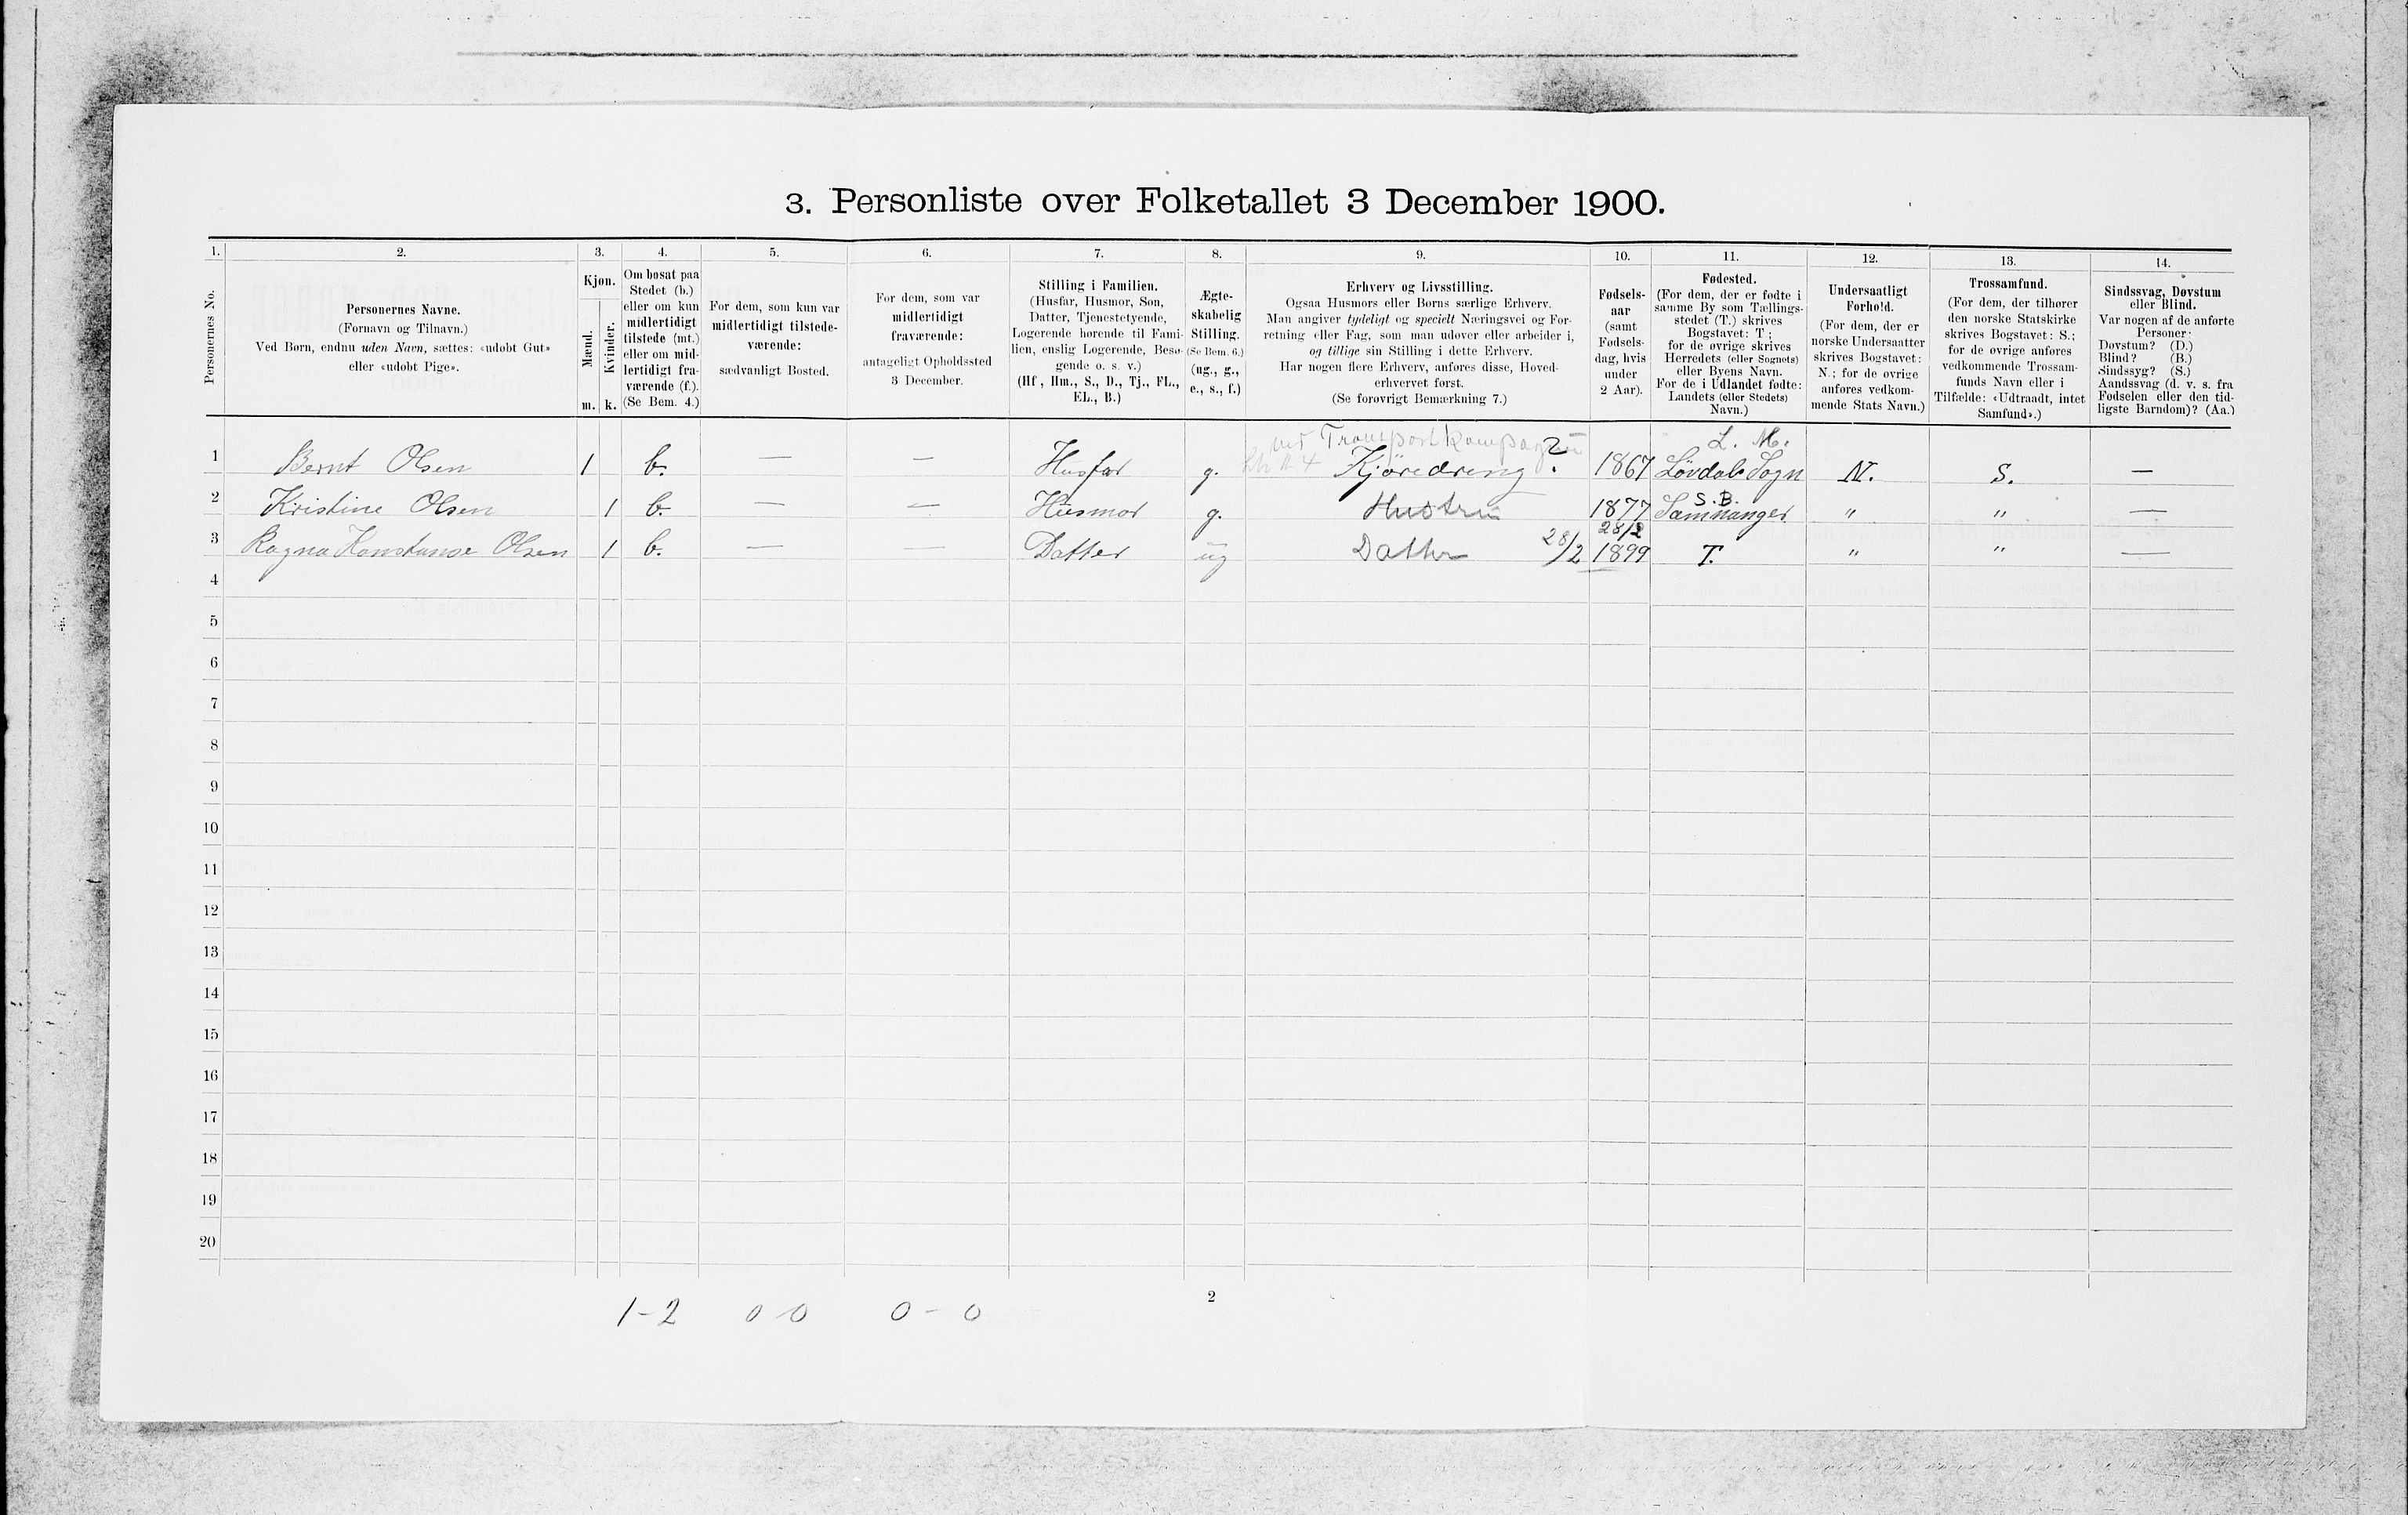 3. Personliste over Folketallet 3 December 1900.
1. 2. 3. 4. 5. 6. 7. 8. 9. 10. 11. 12. 13. 14.
Personernes No.
Personernes Navne.
(Fornavn og Tilnavn.)
Ved Børn, endnu uden Navn, sættes: «udøbt Gut»
eller «udøbt Pige».
Kjøn.
Mænd.
Kvinder.
m. k.
Om bosat paa
Stedet (b.)
eller om kun
midlertidigt
tilstede (mt.)
eller om mid-
lertidigt fra-
værende (f.).
(Se Bem. 4.)
For dem, som kun var
midlertidigt tilstede-
værende:
sædvanligt Bosted.
For dem, som var
midlertidigt
fraværende:
antageligt Opholdssted
3 December.
Stilling i Familien.
(Husfar, Husmor, Søn,
Datter, Tjenestetyende,
Logerende hørende til Fami-
lien, enslig Logerende, Besø-
gende o. s. v.)
(Hf., Hm., S., D., Tj., FL.,
EL., B.)
Ægte-
skabelig
Stilling.
(Se Bem. 6.)
(ug., g.,
e., s., f.)
Erhverv og Livsstilling.
Ogsaa Husmors eller Børns særlige Erhverv.
Man angiver tydeligt og specielt Næringsvei og For-
retning eller Fag, som man udøver eller arbeider i,
og tillige sin Stilling i dette Erhverv.
Har nogen flere Erhverv, anføres disse, Hoved-
erhvervet først.
(Se forøvrigt Bemærkning 7.)
Fødsels-
aar
(samt
Fødsels-
dag, hvis
under
2 Aar).
Fødested.
(For dem, der er fødte i
samme By som Tællings-
stedet (T.) skrives
Bogstavet: T;
for de øvrige skrives
Herredets (eller Sognets)
eller Byens Navn.
For de i Udlandet fødte:
Landets (eller Stedets)
Navn.)
Undersaatligt
Forhold.
(For dem, der er
norske Undersaatter
skrives Bogstavet:
N.; for de øvrige
anføres vedkom-
mende Stats Navn.)
Trossamfund.
(For dem, der tilhører
den norske Statskirke
skrives Bogstavet: S.;
for de øvrige anføres
vedkommende Trossam-
funds Navn eller i
Tilfælde: «Udtraadt, intet
Samfund».)
Sindssvag, Døvstum
eller Blind.
Var nogen af de anførte
Personer:
Døvstum? (D.)
Blind? (B.)
Sindssyg? (S.)
Aandssvag (d. v. s. fra
Fødselen eller den tid-
ligste Barndom)? (Aa.)
ved Transport L. M.
1 Bernt Olsen 1 b. — — Husfar g. Kjøredreng ? 1867 Lövdals Sogn N. S. —
S. B.
2 Kristine Olsen 1 b. — — Husmor g. Hustru 1877 Samnanger " " —
28/2
3 Ragna Konstanse Olsen 1 b. — — Datter ug Datter 28/2 1899 T. " " —
4
5
6
7
8
9
10
11
12
13
14
15
16
17
18
19
20
1-2 0 0 0-0
2